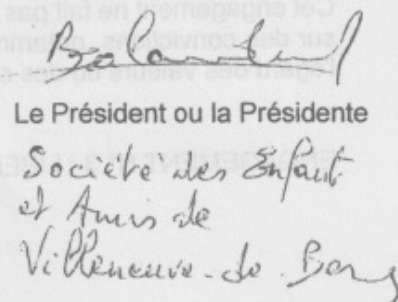 Le Président ou la Présidente
Société des Enfant
et Amis de
Villeneuve-de Berg